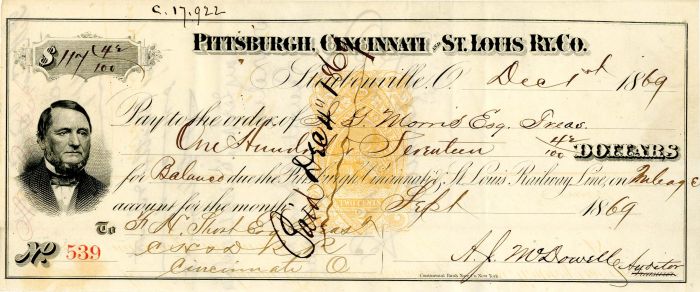 C. 17,922
$117 42/100
PITTSBURGH, CINCINNATI AND ST. LOUIS RY. CO.
Steubenville, O. Dec 1st 1869
Pay to the order of Morris Esq. Treas.
One Hundred & Seventeen 42/100 DOLLARS
for Balance due the Pittsburgh, Cincinnati & St. Louis Railway Line, on Mileage
account for the month of Sept 1869
To F. H. Short Esq
Cincinnati O
No. 539
A. J. McDowell Auditor
Paid Dec 4" 1869
TWO CENTS
Continental Bank Note Co. New York